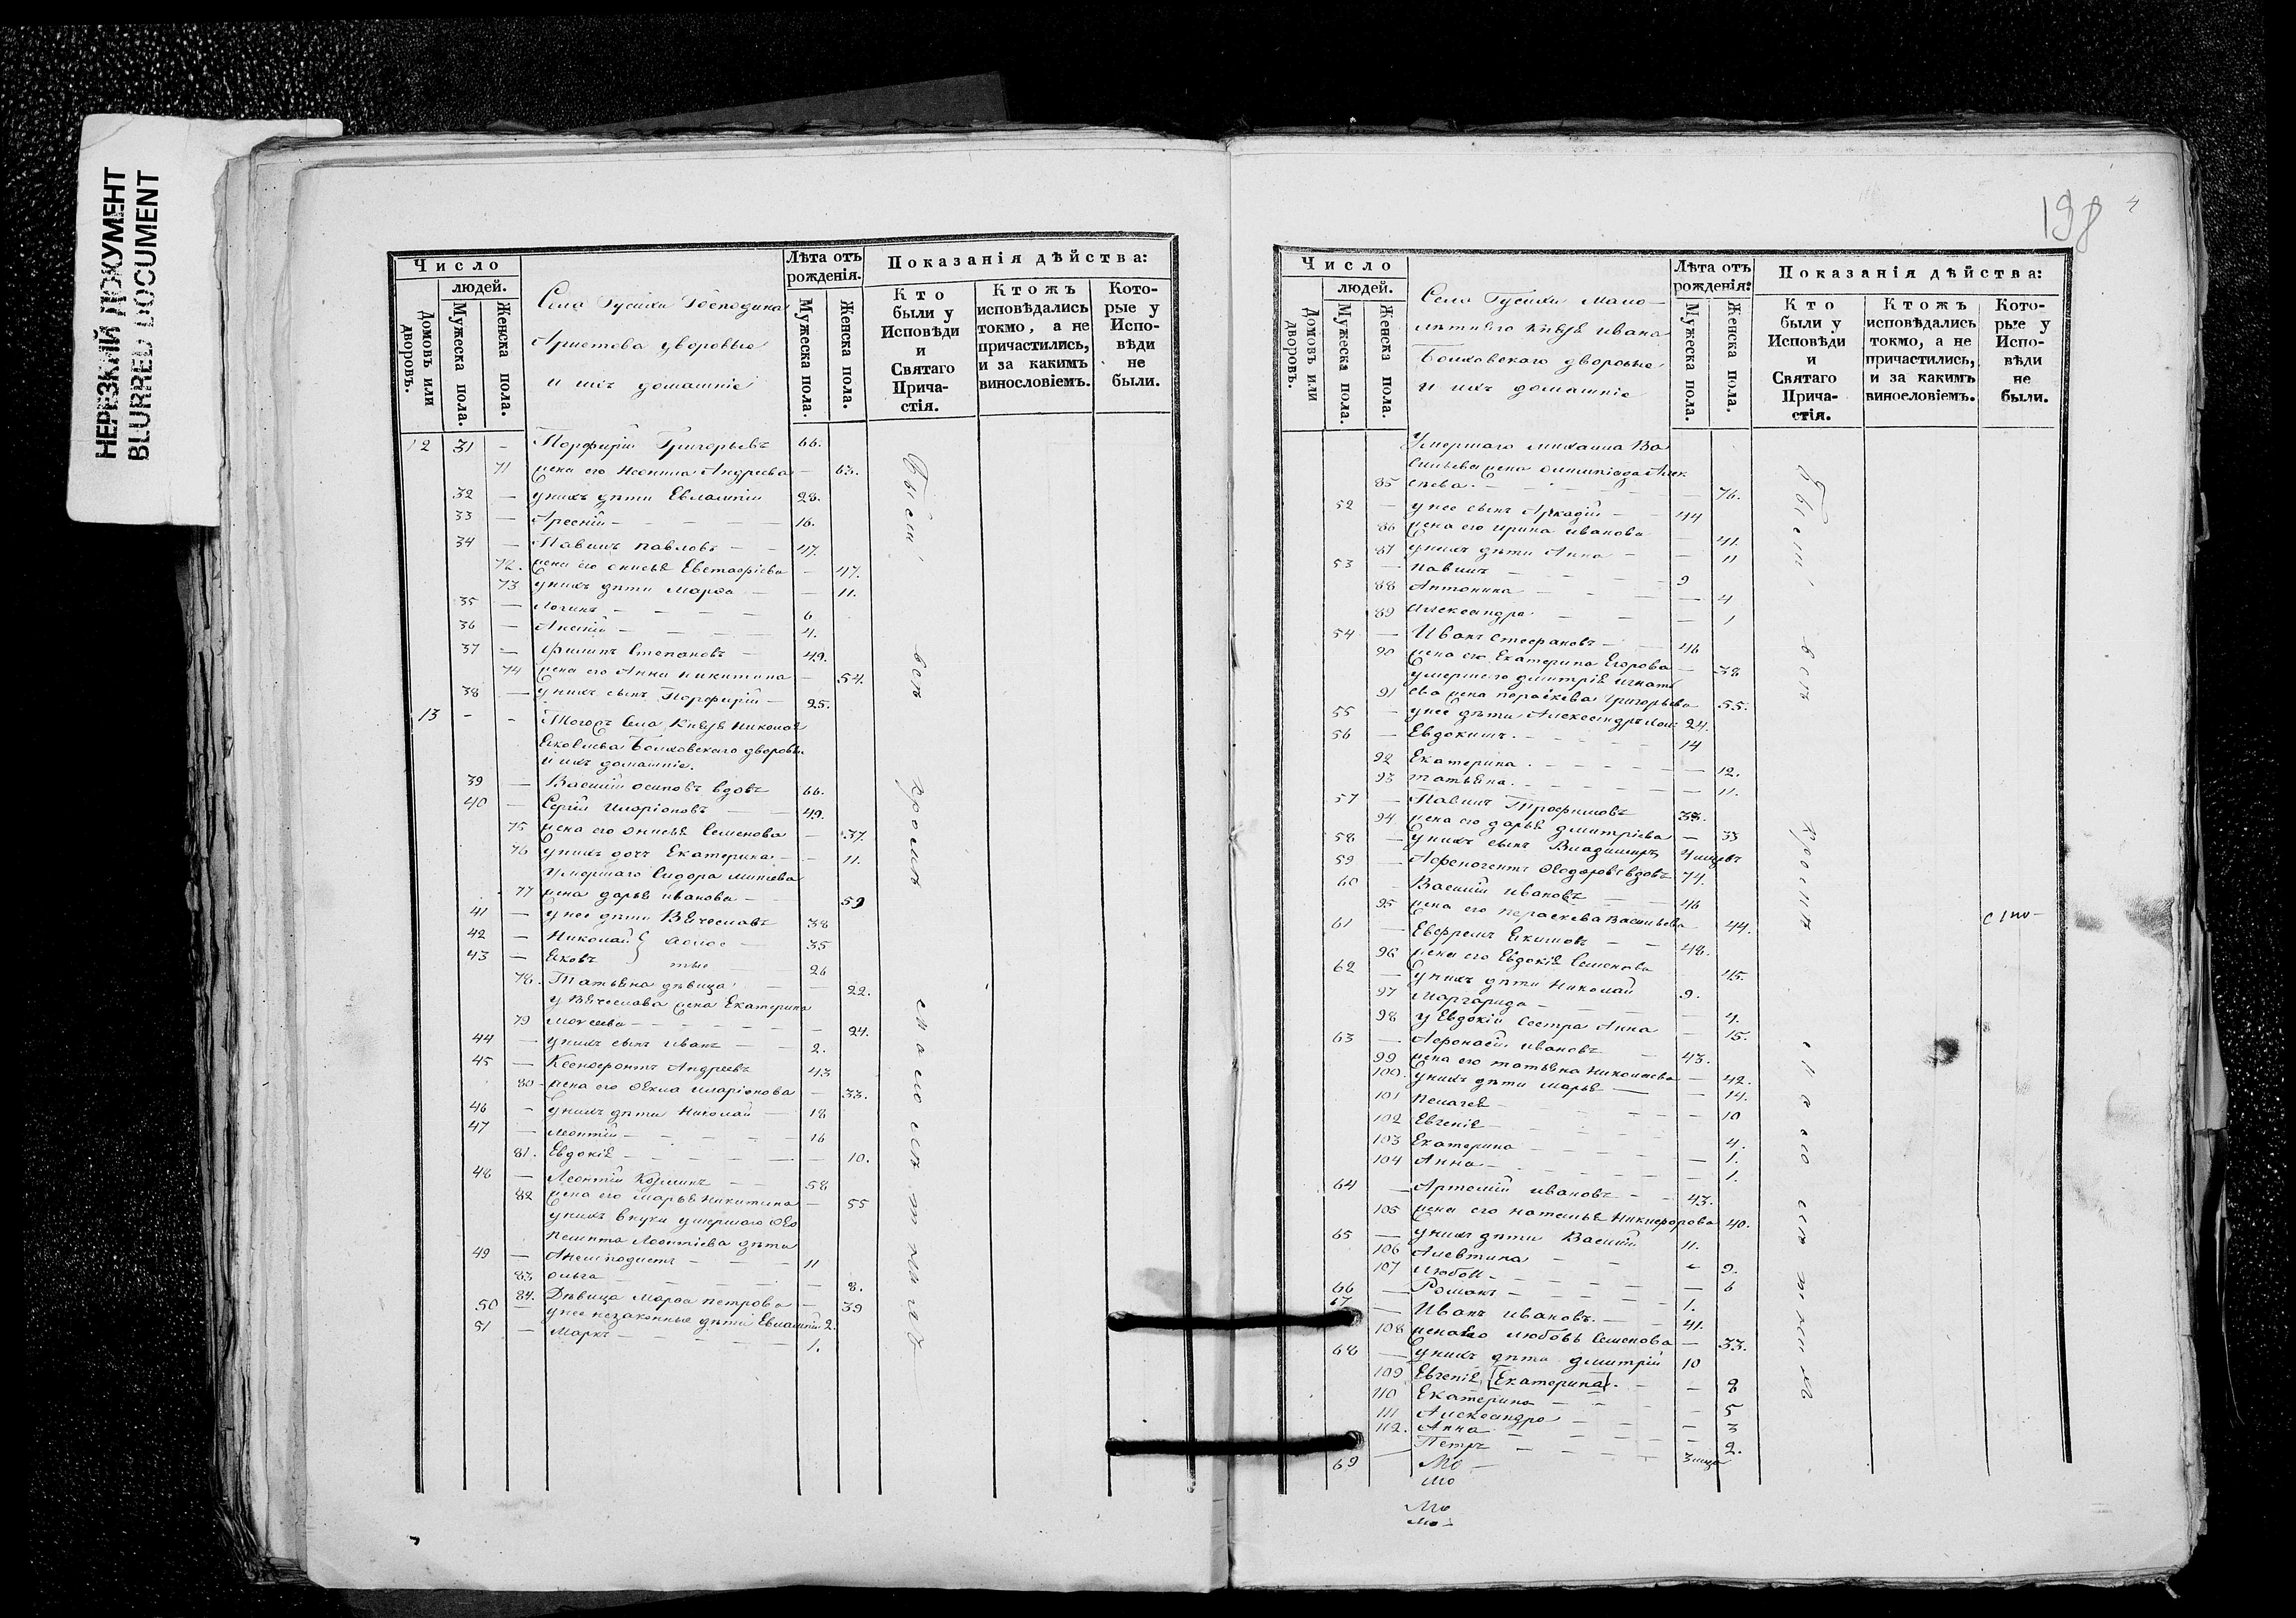 НЕРЕЗКИЙ ДОКУМЕНТ
BLURRED DOCUMENT
Число
людей.
Домовъ или дворовъ.
Мужеска пола.
Женска пола.
Села Гусихи Господина
Аристова дворовые
и ихъ домашніе
Лѣта отъ рожденія.
Мужеска пола.
Женска пола.
Показанія дѣйства:
Кто были у Исповѣди и Святаго Причастія.
Ктожъ исповѣдались токмо, а не причастились, и за какимъ винословіемъ.
Которые у Исповѣди не были.
12 31 - Порфирій Григорьевъ 66.
71 жена его Неонила Андреева - 63.
32 - у нихъ дѣти Евлампій 28.
33 - Арсеній - 16.
34 - Павилъ Павловъ - 47.
72. жена его Онисья Евстафіева - 47.
73 у нихъ дѣти Марфа - 11.
35 - Логинъ - 6
36 - 4.
37 - Филипъ Степановъ - 49.
74 жена его Анна Никитина - 54.
38 - у нихъ сынъ Порфирій - 25.
13 - - Тогожъ села Князя Николая
Яковлева Болховскаго дворовые
и ихъ домашніе.
39 - Василій Осиповъ вдовъ 66.
40 - Сергій Иларіоновъ 49.
75 жена его Онисья Семенова - 37.
76 у нихъ дочь Екатерина - 11.
Умершаго Сидора
77 жена Дарья Иванова - 59
41 - у нее дѣти Вячеславъ 38
42 - Николай } холос 35
43 - Яковъ } тые 26
78. Татьяна дѣвица - 22.
У Вячеслава жена Екатерина
79 Моисеева - 24.
44 - у нихъ сынъ Иванъ - 2.
45 - Ксенофонтъ Андреевъ 43
80 - жена его Фекла Иларіонова - 33.
46 - у нихъ дѣти Николай - 18
47 - Леонтій - 16
81. Евдокія - 10.
48 - Леонтій Козминъ - 58
82 жена его Марья Никитина - 55
у нихъ внуки умершаго Фео
пемпта Леонтіева дѣти
49 - Анемподистъ - 11
83 Ольга - 8.
84. Дѣвица Марфа Петрова - 39
50 - у нее незаконные дѣти Евлампій 2.
51 - Маркъ - 1.
Были всѣ кромѣ малолѣтнихъ
198
4
Число
людей.
Домовъ или дворовъ.
Мужеска пола.
Женска пола.
Села Гусихи Мало-
лѣтняго Князя Ивана
Болховскаго дворовые
и ихъ домашніе
Лѣта отъ рожденія:
Мужеска пола.
Женска пола.
Показанія дѣйства:
Кто были у Исповѣди и Святаго Причастія.
Ктожъ исповѣдались токмо, а не причастились, и за какимъ винословіемъ.
Которые у Исповѣди не были.
Умершаго Михаила Ва
сильева жена Олимпіада Алек
85 сѣева. - 76.
52 - у нее сынъ Аркадій - 44
86 жена его Ирина Иванова - 41.
87 у нихъ дѣти Анна - 11
53 - Павилъ - 9
88 Антонина - 4
89 Александра - 1
54 - Иванъ Стефановъ - 46
90 жена его Екатерина Егорова - 38
умершаго Дмитрія Игнать
91 ева жена Параскева Григорьева 55.
55 - у нее дѣти Александръ хол: 24.
56 - Евдокимъ. - 14
92 Екатерина. - 12.
93 Татьяна. - 11.
57 - Павилъ Трофимовъ 38.
94 жена его Дарья Дмитріева - 33
58 - у нихъ сынъ Владимиръ
59 - Афеногентъ Феодоровъ вдовъ 74.
60 - Василій Ивановъ - 46
95 жена его Параскева Васильева 44.
61 - Евфремъ Екимовъ - 48.
96 жена его Евдокія Семенова 45.
62 - у нихъ дѣти Николай 9.
97 Маргарида - 4.
98 у Евдокіи сестра Анна - 15.
63 - Афонасій Ивановъ - 43.
99 жена его Татьяна Николаева - 42.
100. у нихъ дѣти Марья - 14.
101 Пелагея - 10
102 Евгенія -
103 Екатерина - 4.
104 Анна - 1.
64 - Артемій Ивановъ - 43.
105 жена его Наталья Никифорова 40.
65 - у нихъ дѣти Василій 11.
106 Алевтина - 9.
107 Любовь - 6
66 - Романъ - 1.
67 - Иванъ Ивановъ. - 41.
108 жена его Любовь Семенова - 33.
68 - у нихъ дѣти Дмитрій 10
109 Евгенія [Екатерина]. - 8
110 Екатерина - 5
111 Александра - 3
112. Анна - 2.
69 - Петръ -
Мо -
Мо
Мо
Мо -
Были всѣ кромѣ малолѣтнихъ